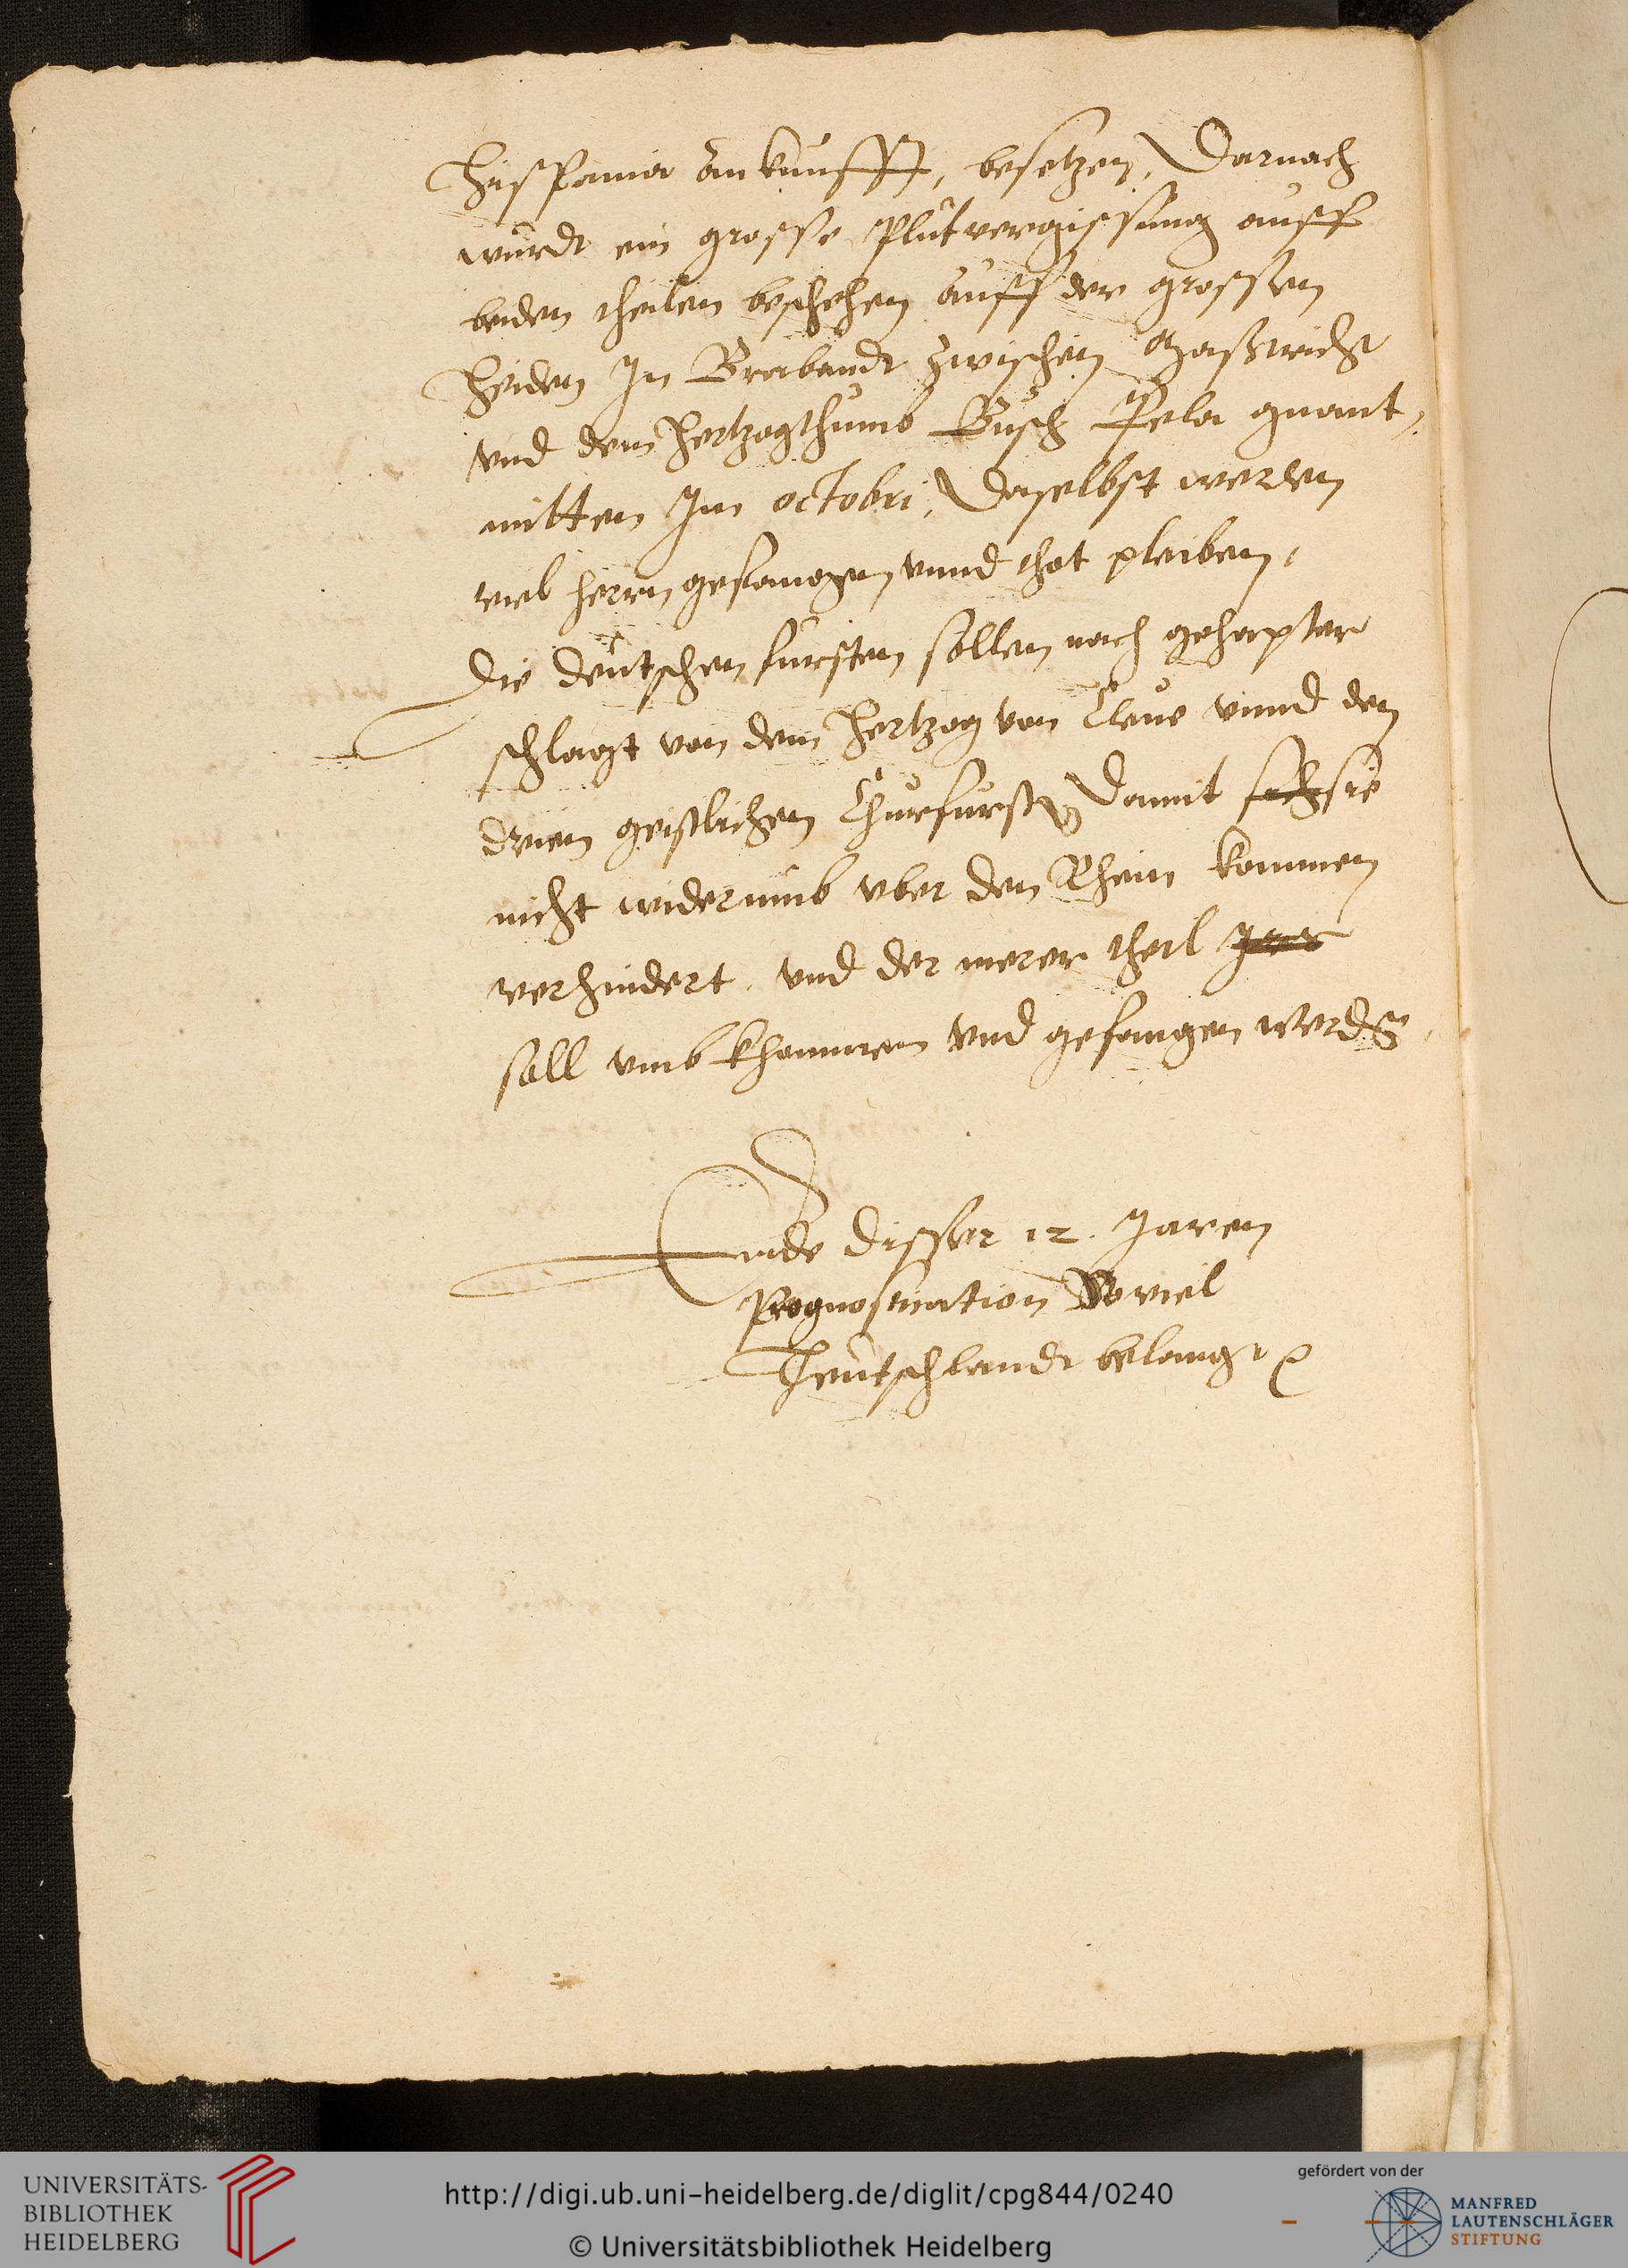 Hispania ankunfft, besetzen, Darnach
wurdt ein grosse Plutvergissung auff
beiden theilen beschehen auff der grossen
Heiden In Brabandt zwischen Mastricht
vnd dem Hertzogthumb Busch Pela gnant,
mitten Im octobri, Daselbst werden
viel herrn gefangen vnnd thot pleiben,
Die deutschen fursten sollen nach gehapter
schlagt von dem Hertzog von Cleue vnnd den
dreien geistlichen Churfursten Damit sich sie
nicht widerumb vber den Rhein kommen
verhindert, vnd der merer theil
soll vmbkhommen vnd gefangen werden,
Ende disser 12. Jaren
Prognostication So viel
Teutschlandt belangt
UNIVERSITÄTS-
BIBLIOTHEK
HEIDELBERG
http://digi.ub.uni-heidelberg.de/diglit/cpg844/0240
© Universitätsbibliothek Heidelberg
gefördert von der
MANFRED
LAUTENSCHLÄGER
STIFTUNG